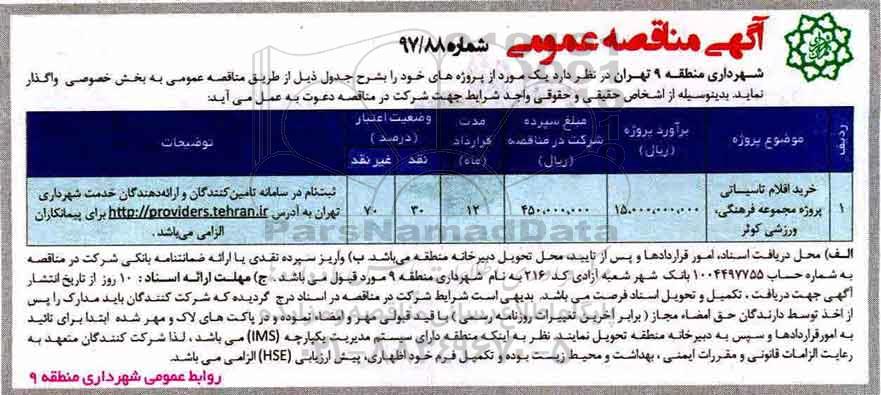 آگهی مناقصه عمومی شماره ۹۷/۸۸
شهرداری منطقه ۹ تهران در نظر دارد یک مورد از پروژه های خود را بشرح جدول ذیل از طریق مناقصه عمومی به بخش خصوصی واگذار
نماید. بدینوسیله از اشخاص حقیقی و حقوقی واجد شرایط جهت شرکت در مناقصه دعوت به عمل می آید:
ردیف
موضوع پروژه
برآورد پروژه
(ریال)
مبلغ سپرده
شرکت در مناقصه
(ریال)
مدت
قرارداد
(ماه)
وضعیت اعتبار
(درصد)
نقد غیر نقد
توضیحات
۱
خرید اقلام تاسیساتی
پروژه مجموعه فرهنگی،
ورزشی کوثر
۱۵,۰۰۰,۰۰۰,۰۰۰
۴۵۰,۰۰۰,۰۰۰
۱۲
۳۰
۷۰
ثبت‌نام در سامانه تامین‌کنندگان و ارائه‌دهندگان خدمت شهرداری
تهران به آدرس http://providers.tehran.ir برای پیمانکاران
الزامی می‌باشد.
الف) محل دریافت اسناد، امور قراردادها و پس از تایید، محل تحویل دبیرخانه منطقه می‌باشد. ب) واریز سپرده نقدی یا ارائه ضمانتنامه بانکی شرکت در مناقصه
به شماره حساب ۱۰۰۴۴۹۷۷۵۵ بانک شهر شعبه آزادی کد ۲۱۶ به نام شهرداری منطقه ۹ مورد قبول می باشد. ج) مهلت ارائه اسناد: ۱۰ روز از تاریخ انتشار
آگهی جهت دریافت، تکمیل و تحویل اسناد فرصت می باشد. بدیهی است شرایط شرکت در مناقصه در اسناد درج گردیده که شرکت کنندگان باید مدارک را پس
از اخذ توسط دارندگان حق امضاء مجاز (برابر آخرین تغییرات روزنامه رسمی) با قید قبولی مهر و امضاء نموده و در پاکت های لاک و مهر شده ابتدا برای تائید
به امورقراردادها و سپس به دبیرخانه منطقه تحویل نمایند. نظر به اینکه منطقه دارای سیستم مدیریت یکپارچه (IMS) می باشد، لذا شرکت کنندگان متعهد به
رعایت الزامات قانونی و مقررات ایمنی، بهداشت و محیط زیست بوده و تکمیل فرم خود اظهاری، پیش ارزیابی (HSE) الزامی می باشد.
روابط عمومی شهرداری منطقه ۹
ParsNamadData